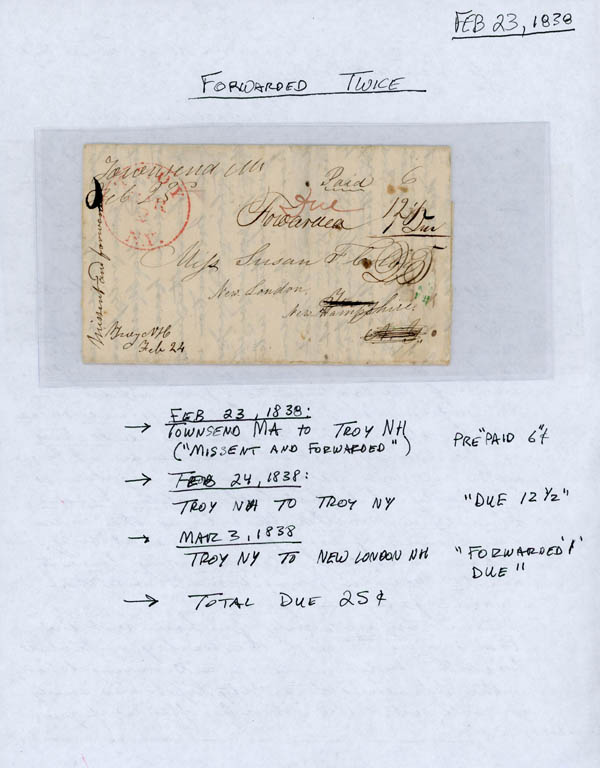 FEB 23, 1838
FORWARDED TWICE
Townsend Ms
Feb 23
Paid 6
Due
Forwarded
12 1/2
Due
N.Y.
Missent and forwarded
Miss Susan
New London
New Hampshire
Troy NH
Feb 24
→ FEB 23, 1838:
TOWNSEND MA TO TROY NH
("MISSENT AND FORWARDED") PRE"PAID 6"¢
→ FEB 24, 1838:
TROY NH TO TROY NY "DUE 12 1/2"
→ MAR 3, 1838
TROY NY TO NEW LONDON NH "FORWARDED"/"
DUE"
→ TOTAL DUE 25¢